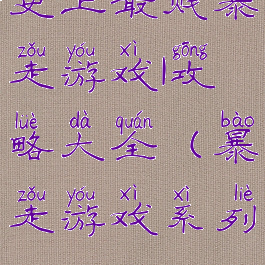 史上最贱暴
zǒu yóu xì gōng
走游戏|攻
lüè dà quán bào
略大全（暴
zǒu yóu xì xì liè
走游戏系列